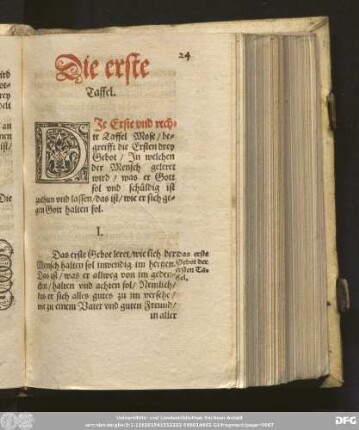 24
Die erste
Taffel.
DIe Erste vnd rech-
te Taffel Mose / be-
greifft die Ersten drey
Gebot / In welchen
der Mensch geleret
wird / was er Gott
sol vnd schüldig ist
zuthun vnd lassen / das ist / wie er sich ge-
gen Gott halten sol.
I.
Das erste Gebot leret / wie sich der
Mensch halten sol inwendig im hertzen.
Das ist / was er allweg von im geden-
cken / halten vnd achten sol / Nemlich /
das er sich alles gutes zu im versehe /
wie zu einem Vater vnd guten Freund /
in aller
Das erste
Gebot der
ersten Ta-
fel.
ird
drey
an
nen
ist /
Die
Universitäts- und Landesbibliothek Sachsen-Anhalt
DFG